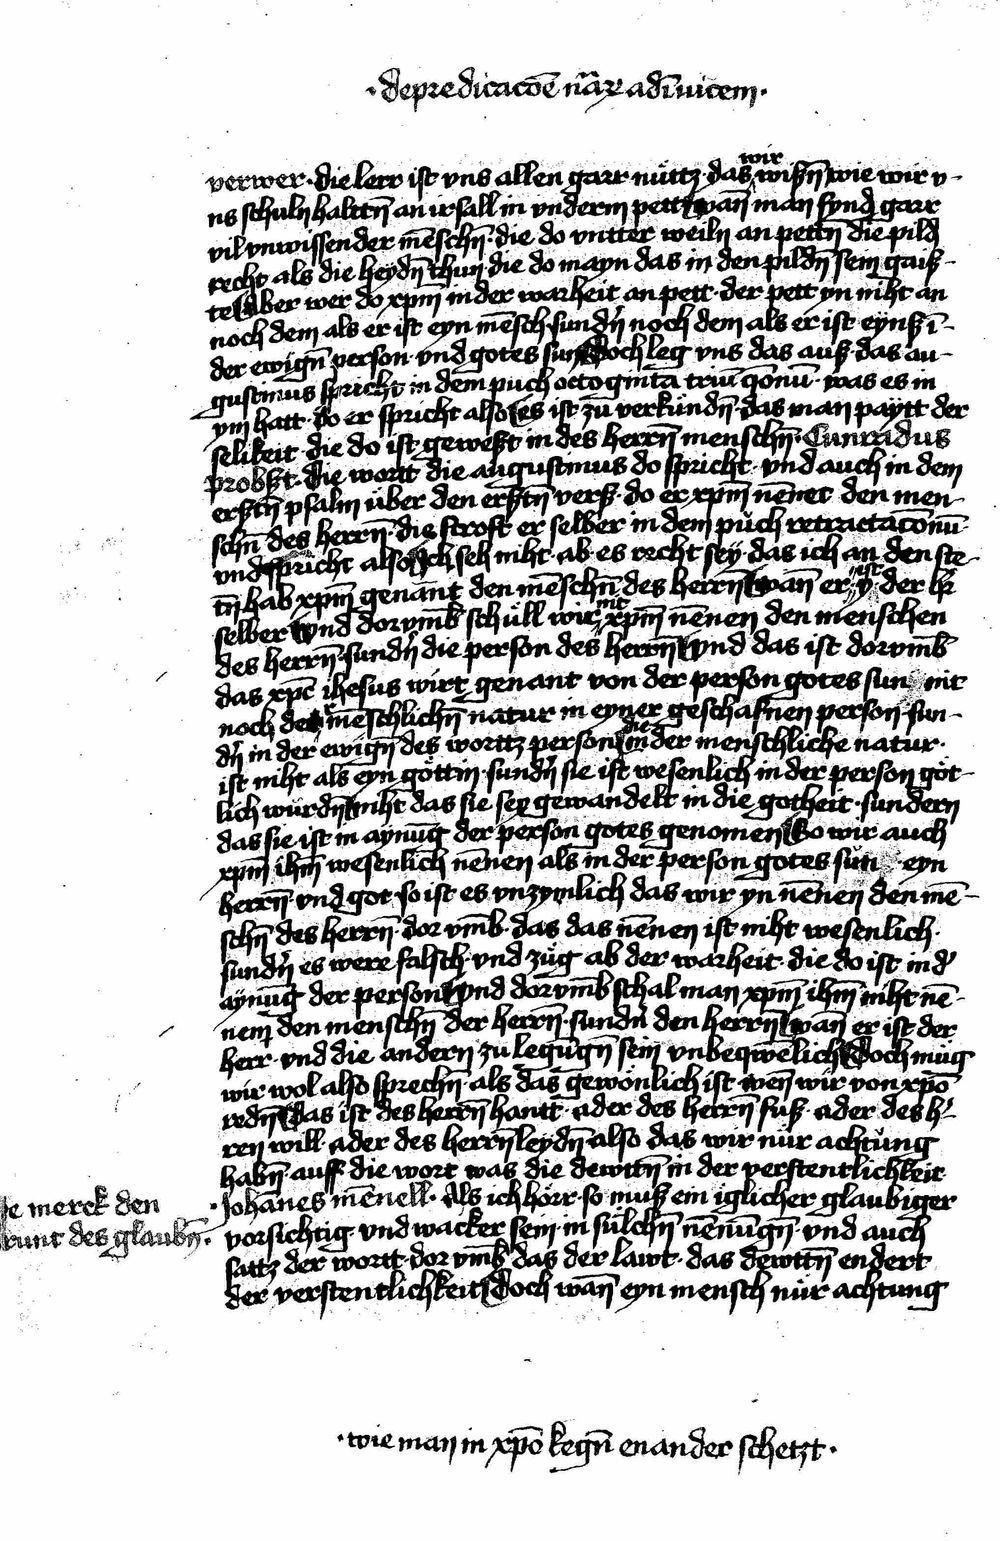 · depredicacōe nr̄aꝝ adīuicem ·
wir
verwer · die lerr ist vns allen garr nütz · das wißn̄ wie wir v-
ns schuln haltn̄ an irsall in vnderm pett wan̄ man fynd garr
vil vnwissender mēschn̄ · die do vntter weiln an pettn̄ die pild
recht als die heydn̄ thun · die do mayn das in den pildn̄ sein gaiß-
te Aber wer do xpm̄ in der warheit an pett · der pett yn niht an
noch dem als er ist eyn mēsch · sundn̄ noch dem als er ist eynß ī-
der ewign̄ person · vnd gotes sun Doch leg vns das auß · das au-
gustinus spricht in dem puch octoginta triū q̄onū · was es in
ym hatt · do er spricht also es ist zu verkündn̄ · das man paytt der
selikeit · die do ist geweßt in des herrn̄ menschn̄ · Cunradus
probßt · die wortt die augustinus do spricht · vnd auch in dem
erßtn̄ psalm über den erßtn̄ verß · do er xpm̄ nēnet den men-
schn̄ des herrn̄ · die stroft er selber in dem püch retractacōnū
vnd spricht also Ich seh niht · ab es recht sey · das ich an den ste-
tn̄ hab xpm̄ genant den mēschn̄ des herrn̄ wan̄ er ist der hr̄
selber Vnd dorvmb schüll wir nit xpm̄ nēnen den menschen
des herrn̄ · sundn̄ die person des herrn̄ Vnd das ist dorvmb
das xpc̄ ihesus wirt genant von der person gotes sun nit
noch der mēschlichn̄ natur in eyner geschafnen person · sun-
dn̄ in der ewign̄ des worttz person die in der menschliche natur ·
ist niht als eyn göttin · sundn̄ sie ist wesenlich in der person göt-
lich wurdn̄ niht das sie sey gewandelt in die gotheit · sundern
das sie ist in aynūg der person gotes genomen So wir auch
xpm̄ ihm̄ wesenlich nēnen als in der person gotes sun eyn
herrn̄ · vnd got · so ist es vnzymlich das wir yn nēnen den mē-
schn̄ des herrn̄ · dor vmb · das das nēnen ist niht wesenlich ·
sundn̄ es were falsch · vnd züg ab der warheit · die do ist in d'
aynūg der person Vnd dorvmb schal man xpm̄ ihm̄ niht nē-
nen den menschn̄ der herrn̄ · sundn̄ den herrn̄ wan̄ er ist der
herr · vnd die andern zu legūgn̄ sein vnbeqwēlich Doch müg
wir wol also sprechn̄ · als das gewönlich ist wen̄ wir von xpō
redn̄ Das ist des herrn̄ hantt · ader des herrn̄ fuß · ader des h'-
ren will ader des herrn̄ leydn̄ also das wir nür achtüng
habn̄ · auff die wort was die dewttn̄ in der verstentlichkeit
· Johānes mēnell · Als ich hörr · so muß ein iglicher glaubiger
vorsichtig · vnd wacker sein · in sülchn̄ nēnūgn̄ · vnd auch
sattz der wortt · dor vmb das der lawt · das dewttn̄ endert
der verstentlichkeit Doch wan̄ eyn mensch nür achtung
merck den
des glaubn̄ ·
· wie man in xpō kegn̄ enander schetzt ·